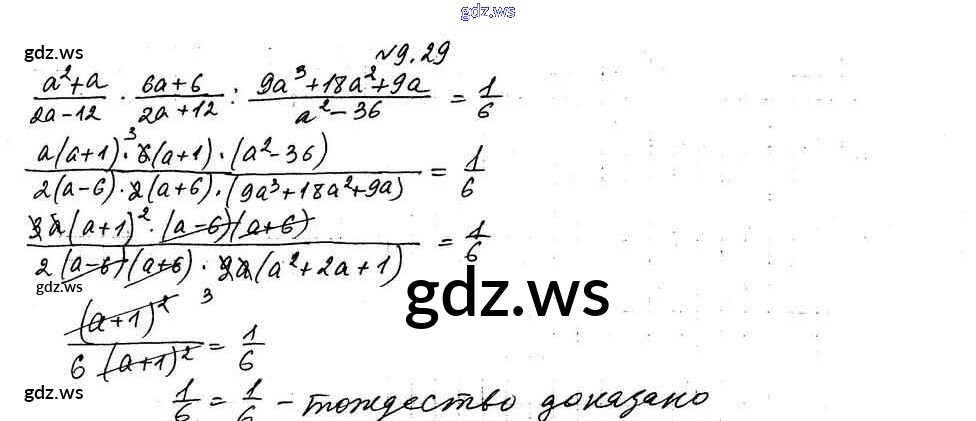 gdz.ws
gdz.ws
№9.29
(a²+a)/(2a-12) · (6a+6)/(2a+12) : (9a³+18a²+9a)/(a²-36) = 1/6
(a(a+1)·6̸³(a+1)·(a²-36))/(2(a-6)·2̸(a+6)·(9a³+18a²+9a)) = 1/6
(3a(a+1)²·(a-6)(a+6))/(2(a-6)(a+6)·9a(a²+2a+1)) = 1/6
gdz.ws
3
gdz.ws
(a+1)²/(6(a+1)²) = 1/6
gdz.ws
1/6 = 1/6 - тождество доказано